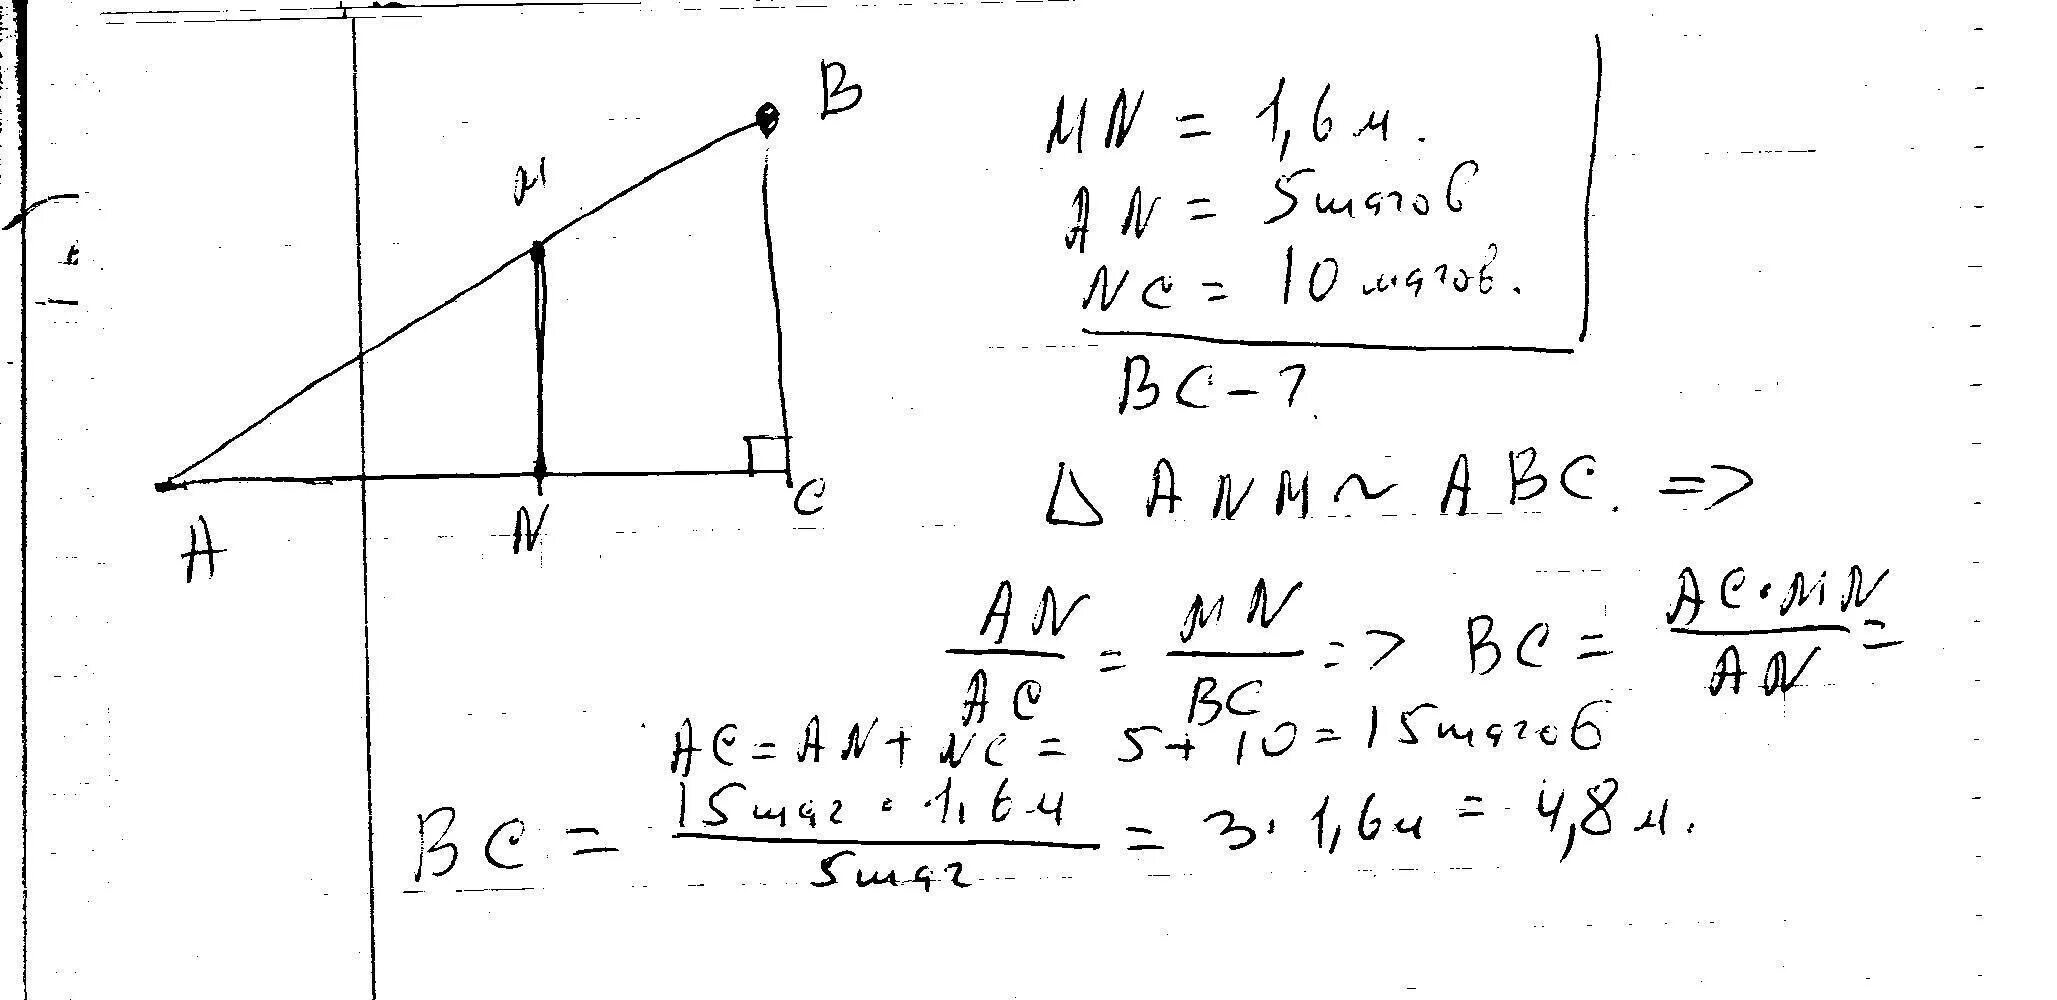 B
M
A
N
C
MN = 1,6 м.
AN = 5 шагов
NC = 10 шагов.
BC - ?
Δ ANM ~ ABC. =>
AN/AC = MN/BC => BC = AC·MN/AN =
AC = AN + NC = 5 + 10 = 15 шагов
BC = 15 шаг · 1,6 м / 5 шаг = 3 · 1,6 м = 4,8 м.